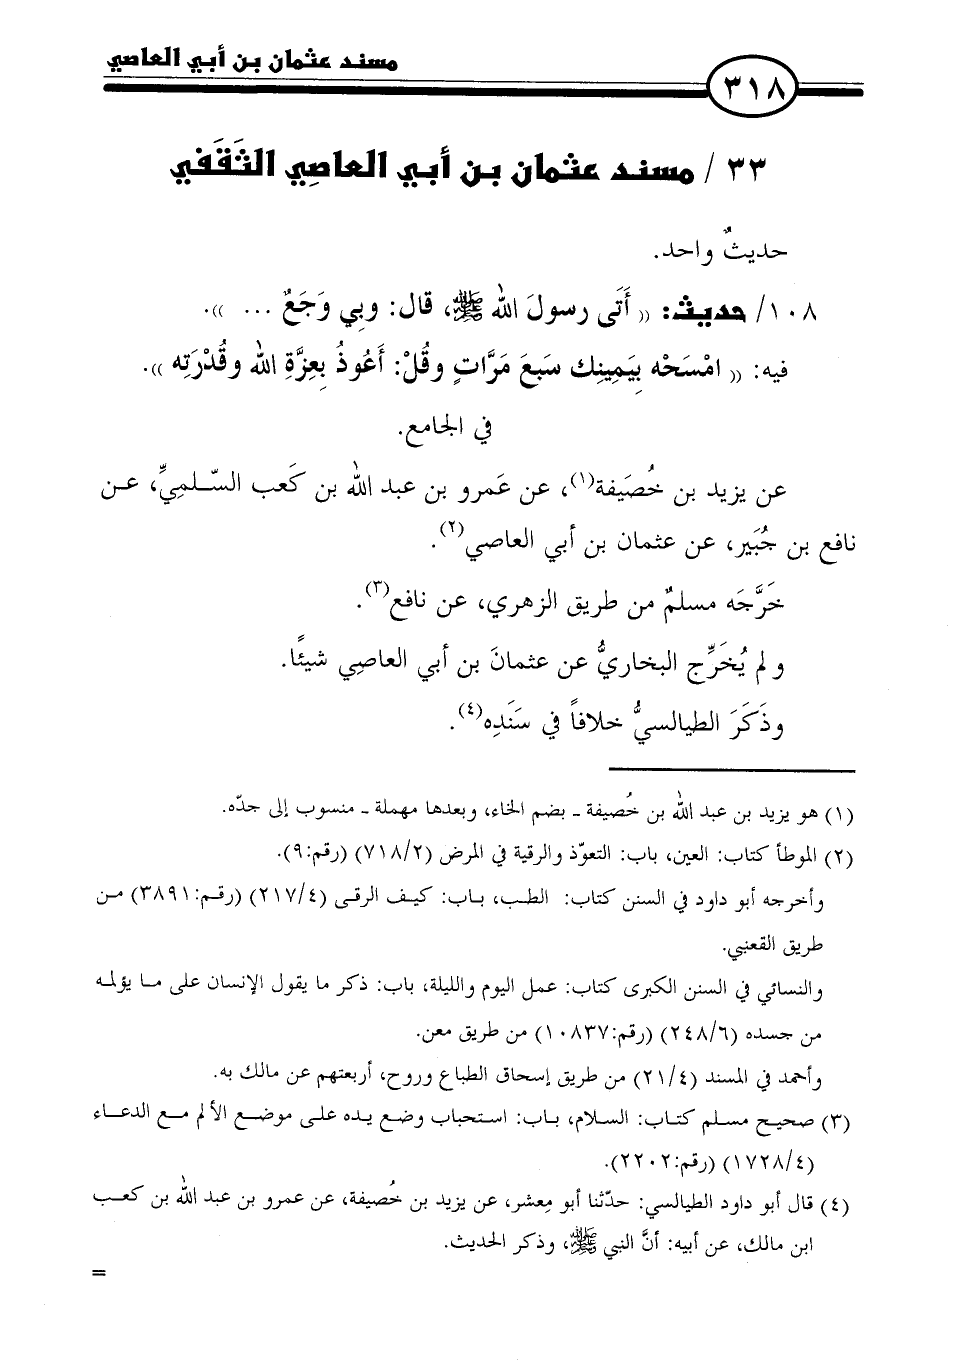 مسند عثمان بن أبي العاصي
٣١٨
٣٣ / مسند عثمان بن أبي العاصِي الثَقَفي
حديثٌ واحد.
١٠٨/ حديث: (( أَتَى رسولَ الله ﷺ، قال: وبِي وَجَعٌ ... )).
فيه: (( امْسَحْه بِيَمِينِك سَبعَ مَرَّاتٍ وقُلْ: أَعُوذُ بِعِزَّةِ الله وقُدْرَتِه )).
في الجامع.
عن يزيد بن خُصَيفة(١)، عن عَمرو بن عبد الله بن كَعب السّلمِيِّ، عن
نافع بن جُبَير، عن عثمان بن أبي العاصي(٢).
خَرَّجَه مسلمٌ من طريق الزهري، عن نافع(٣).
ولم يُخَرِّج البخاريُّ عن عثمانَ بن أبي العاصِي شيئًا.
وذَكَرَ الطيالسيُّ خلافاً في سَنَدِه(٤).
(١) هو يزيد بن عبد الله بن خُصيفة ـ بضم الخاء، وبعدها مهملة ـ منسوب إلى جدّه.
(٢) الموطأ كتاب: العين، باب: التعوّذ والرقية في المرض (٧١٨/٢) (رقم:٩).
وأخرجه أبو داود في السنن كتاب: الطب، باب: كيف الرقى (٢١٧/٤) (رقم:٣٨٩١) من
طريق القعنبي.
والنسائي في السنن الكبرى كتاب: عمل اليوم والليلة، باب: ذكر ما يقول الإنسان على ما يؤلمه
من جسده (٢٤٨/٦) (رقم:١٠٨٣٧) من طريق معن.
وأحمد في المسند (٢١/٤) من طريق إسحاق الطباع وروح، أربعتهم عن مالك به.
(٣) صحيح مسلم كتاب: السلام، باب: استحباب وضع يده على موضع الألم مع الدعاء
(١٧٢٨/٤) (رقم:٢٢٠٢).
(٤) قال أبو داود الطيالسي: حدّثنا أبو مِعشر، عن يزيد بن خُصيفة، عن عمرو بن عبد الله بن كعب
ابن مالك، عن أبيه: أنَّ النبي ﷺ، وذكر الحديث.
=